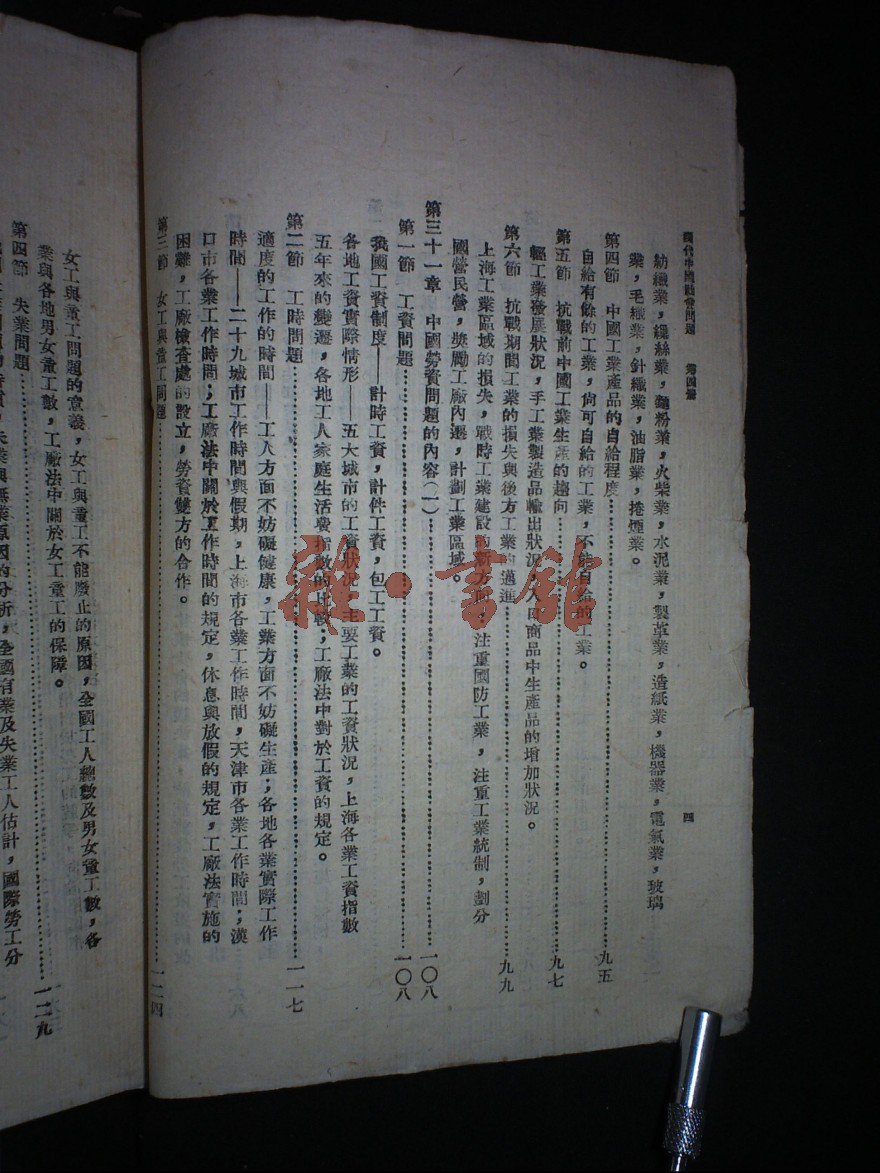 現代中國社會問題　第四冊
四
紡織業，繅絲業，麵粉業，火柴業，水泥業，製革業，造紙業，機器業，電氣業，玻璃
業，毛織業，針織業，油脂業，捲煙業。
第四節　中國工業產品的自給程度……九五
自給有餘的工業，尚可自給的工業，不能自給的工業。
第五節　抗戰前中國工業生產的趨向……九七
輕工業發展狀況，手工業製造品輸出狀況，入口商品中生產品的增加狀況。
第六節　抗戰期間工業的損失與後方工業的邁進……九九
上海工業區域的損失，戰時工業建設的新方向，注重國防工業，注重工業統制，劃分
國營民營，獎勵工廠內遷，計劃工業區域。
第三十一章　中國勞資問題的內容（一）……一〇八
第一節　工資問題……一〇八
我國工資制度——計時工資，計件工資，包工工資。
各地工資實際情形——五大城市的工資狀況，主要工業的工資狀況，上海各業工資指數
五年來的變遷，各地工人家庭生活費指數的比較；工廠法中對於工資的規定。
第二節　工時問題……一一七
適度的工作的時間——工人方面不妨礙健康，工業方面不妨礙生產；各地各業實際工作
時間——二十九城市工作時間與假期，上海市各業工作時間，天津市各業工作時間；漢
口市各業工作時間；工廠法中關於工作時間的規定，休息與放假的規定，工廠法實施的
困難，工廠檢查處的設立，勞資雙方的合作。
第三節　女工與童工問題……一二四
女工與童工問題的意義，女工與童工不能廢止的原因，全國工人總數及男女童工數，各
業與各地男女童工數，工廠法中關於女工童工的保障。
第四節　失業問題……一二九
失業與無業原因的分析，全國有業及失業工人估計，國際勞工分
雜·書館